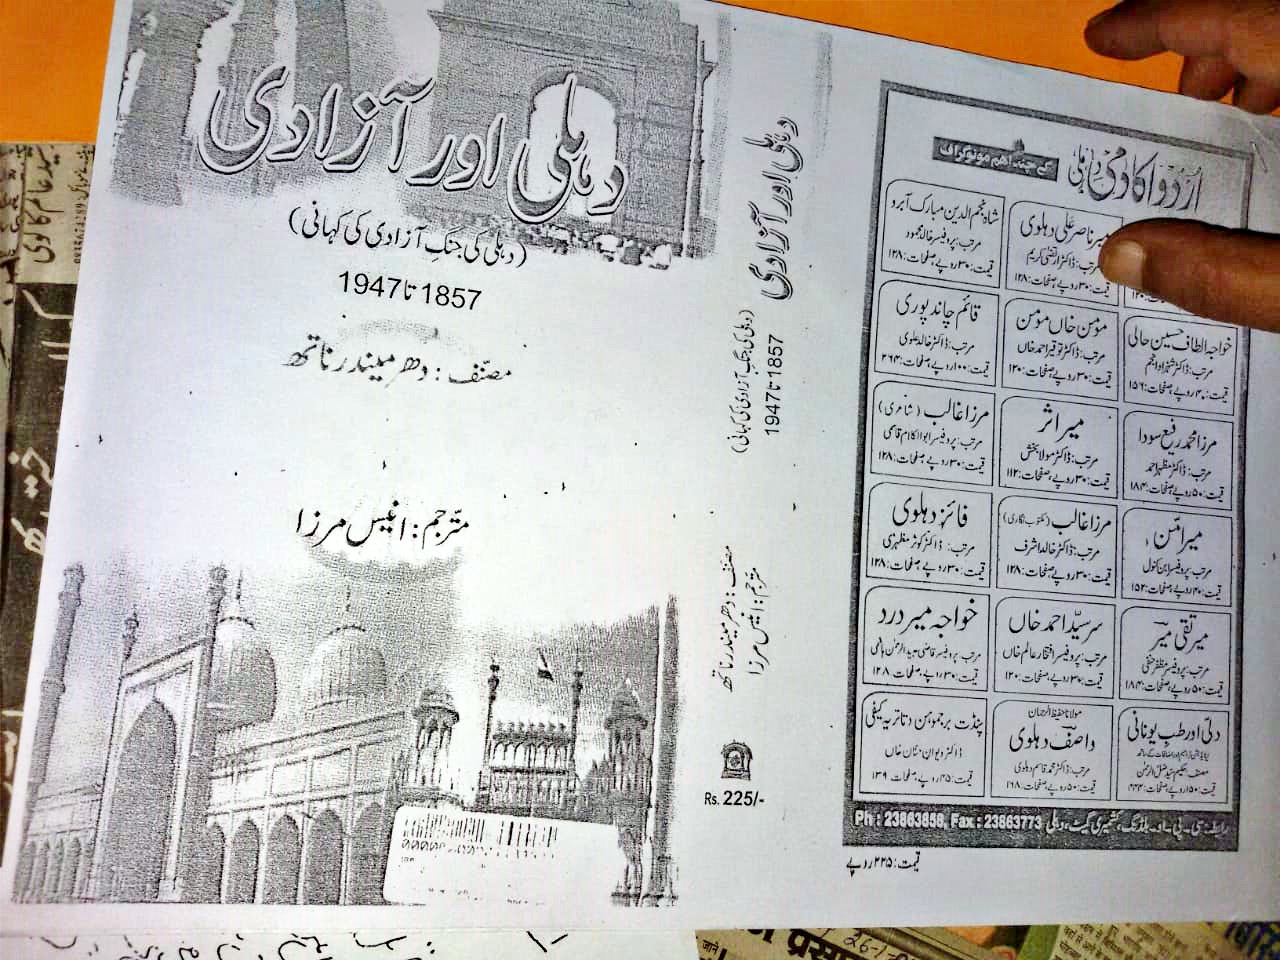 دہلی اور آزادی
(دہلی کی جنگِ آزادی کی کہانی)
1857 تا 1947
مصنّف : دھرمیندر ناتھ
مترجم : انیس مرزا
دہلی اور آزادی
(دہلی کی جنگِ آزادی کی کہانی)
1857 تا 1947
مصنف : دھرمیندر ناتھ
مترجم : انیس مرزا
Rs. 225/-
اُردو اکادمی دہلی
کے چند اہم مونوگراف
شاہ نجم الدین مبارک آبرو
مرتب: پروفیسر خالد محمود
قیمت: ۳۰ روپے، صفحات: ۱۲۸
میر ناصر علی دہلوی
مرتب: ڈاکٹر ارتضیٰ کریم
قیمت: ۳۰ روپے، صفحات: ۱۲۸
قائم چاندپوری
مرتب: ڈاکٹر خالد علوی
قیمت: ۱۰۰ روپے، صفحات: ۲۶۴
مومن خاں مومن
مرتب: ڈاکٹر توقیر احمد خاں
قیمت: ۳۰ روپے، صفحات: ۱۲۰
خواجہ الطاف حسین حالی
مرتب: ڈاکٹر شہزاد انجم
قیمت: ۴۰ روپے، صفحات: ۱۵۶
مرزا غالب (شاعری)
مرتب: پروفیسر ابوالکلام قاسمی
قیمت: ۳۰ روپے، صفحات: ۱۲۸
میر اثر
مرتب: ڈاکٹر مولا بخش
قیمت: ۳۰ روپے، صفحات: ۱۱۲
مرزا محمد رفیع سودا
مرتب: ڈاکٹر مظہر احمد
قیمت: ۵۰ روپے، صفحات: ۱۸۴
فائز دہلوی
مرتب: ڈاکٹر کوثر مظہری
قیمت: ۳۰ روپے، صفحات: ۱۲۸
مرزا غالب (مکتوب نگاری)
مرتب: ڈاکٹر خالد اشرف
قیمت: ۳۰ روپے، صفحات: ۱۲۸
میر امّن
مرتب: پروفیسر ابن کنول
قیمت: ۴۰ روپے، صفحات: ۱۵۲
خواجہ میر درد
مرتب: پروفیسر قاضی عبیدالرحمٰن ہاشمی
قیمت: ۳۰ روپے، صفحات: ۱۲۸
سر سیّد احمد خاں
مرتب: پروفیسر افتخار عالم خاں
قیمت: ۳۰ روپے، صفحات: ۱۲۰
میر تقی میر
مرتب: پروفیسر مظفر حنفی
قیمت: ۵۰ روپے، صفحات: ۱۸۴
پنڈت برجموہن دتاتریہ کیفی
ڈاکٹر دیوان حنان خاں
قیمت: ۴۵ روپے، صفحات: ۱۳۹
مولانا حفیظ الرحمان
واصف دہلوی
مرتب: ڈاکٹر محمد قاسم دہلوی
قیمت: ۵۰ روپے، صفحات: ۱۶۸
دلّی اور طب یونانی
قیمت: ۱۵۰ روپے، صفحات: ۴۴۴
رابطہ: سی۔پی۔او۔ بلڈنگ، کشمیری گیٹ، دہلی Ph : 23863858, Fax : 23863773
قیمت: ۲۲۵ روپے